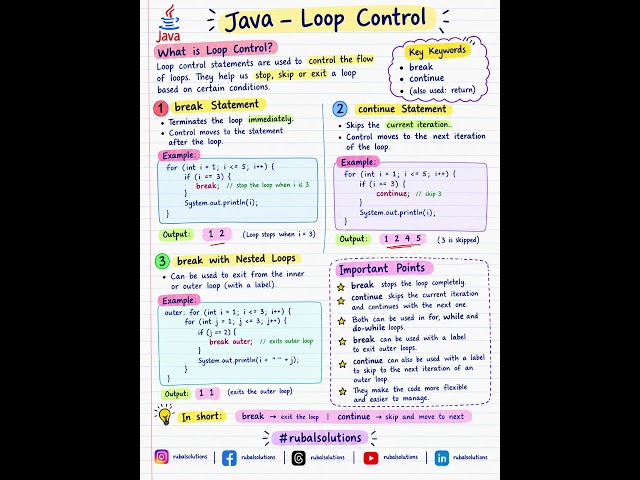 Java
Java – Loop Control
What is Loop Control?
Loop control statements are used to control the flow
of loops. They help us stop, skip or exit a loop
based on certain conditions.
Key Keywords
• break
• continue
• (also used: return)
1 break Statement
• Terminates the loop immediately.
• Control moves to the statement
after the loop.
Example:
for (int i = 1; i <= 5; i++) {
if (i == 3) {
break; // stop the loop when i is 3
}
System.out.println(i);
}
Output: 1 2 (Loop stops when i = 3)
2 continue Statement
• Skips the current iteration.
• Control moves to the next iteration
of the loop.
Example:
for (int i = 1; i <= 5; i++) {
if (i == 3) {
continue; // skip 3
}
System.out.println(i);
}
Output: 1 2 4 5 (3 is skipped)
3 break with Nested Loops
• Can be used to exit from the inner
or outer loop (with a label).
Example:
outer: for (int i = 1; i <= 3; i++) {
for (int j = 1; j <= 3; j++) {
if (j == 2) {
break outer; // exits outer loop
}
System.out.println(i + " " + j);
}
}
Output: 1 1 (exits the outer loop)
Important Points
break stops the loop completely.
continue skips the current iteration
and continues with the next one.
Both can be used in for, while and
do-while loops.
break can be used with a label
to exit outer loops.
continue can also be used with a label
to skip to the next iteration of an
outer loop.
They make the code more flexible
and easier to manage.
In short: break → exit the loop | continue → skip and move to next
#rubalsolutions
rubalsolutions | rubalsolutions | rubalsolutions | rubalsolutions | rubalsolutions